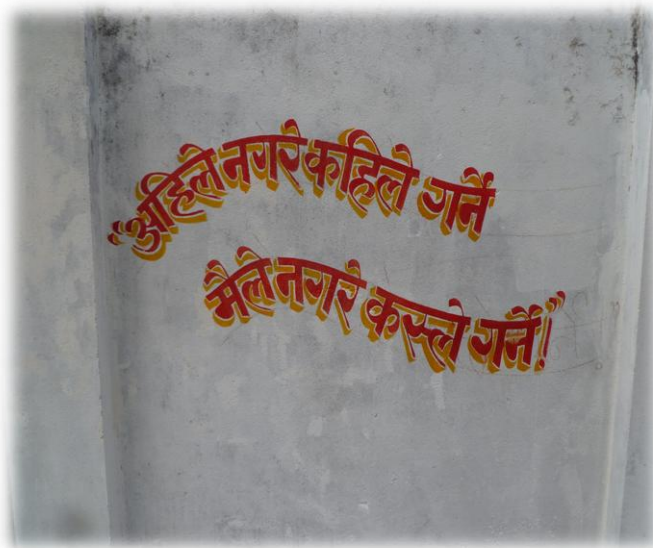 "अहिले नगरे कहिले गर्ने
मैले नगरे कस्ले गर्ने!"